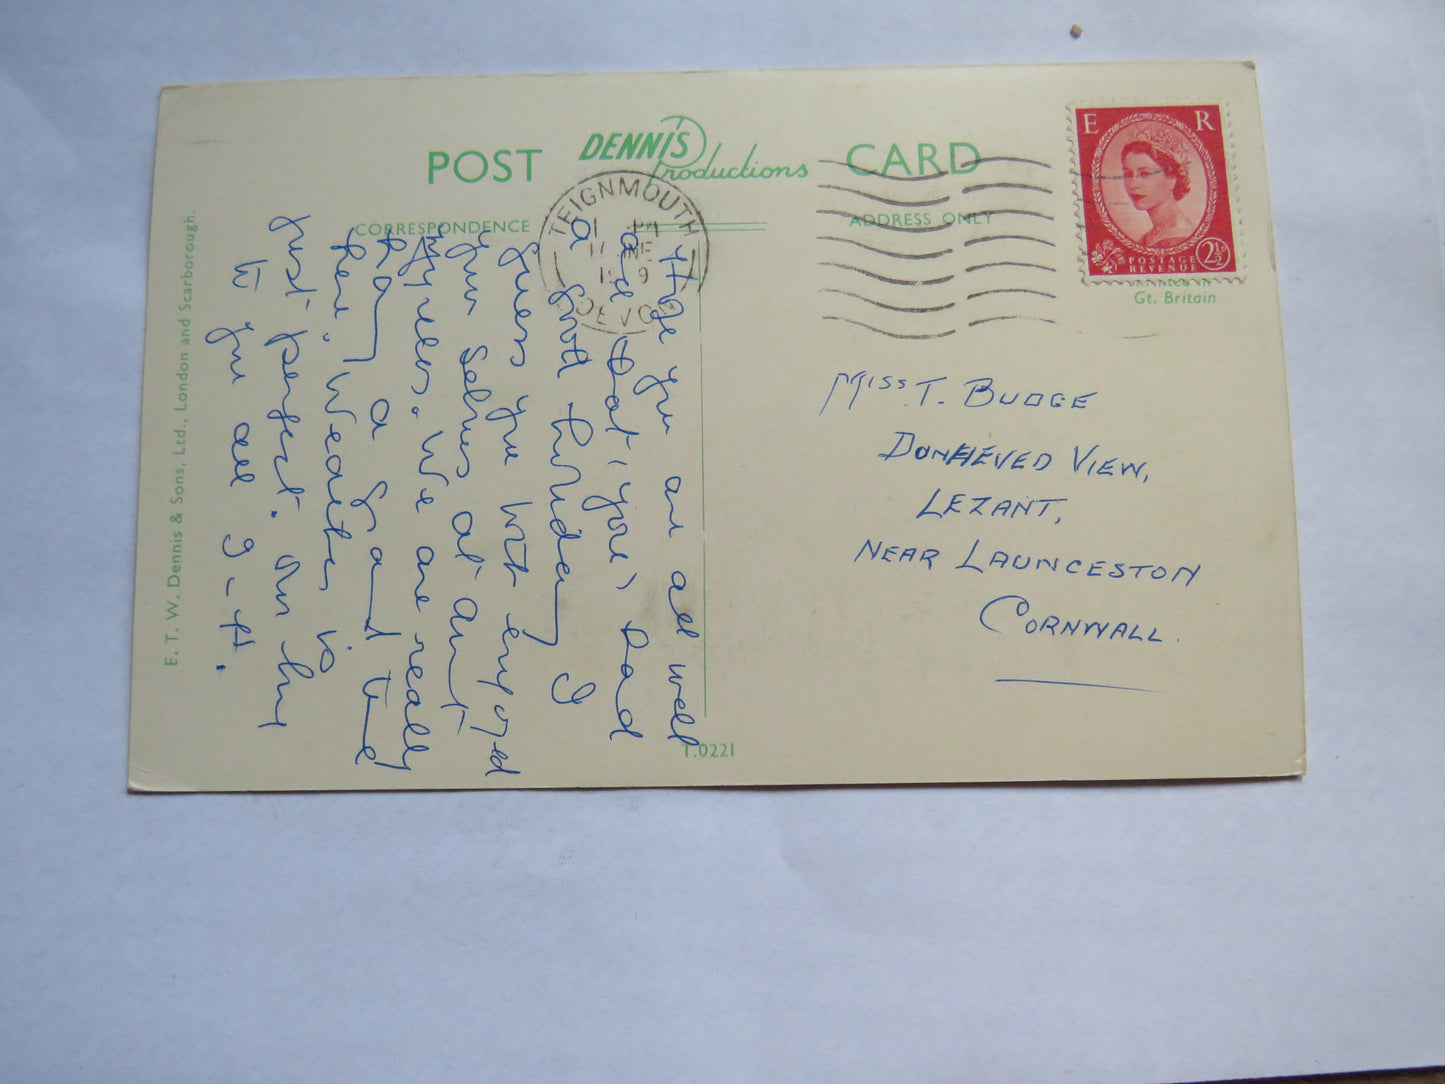 POST DENNIS Productions CARD
CORRESPONDENCE
ADDRESS ONLY
TEIGNMOUTH
DEVON
E R
POSTAGE
REVENUE
2½
Gt. Britain
Hope you are all well
and that you & Dad
a good holiday I
guess you both enjoyed
your selves at aunt
We are really
Having a Grand time
here. Weather is
just perfect. Our love
to you all J-H.
MISS T. BUDGE
DUNHEVED VIEW,
LEZANT,
NEAR LAUNCESTON
CORNWALL.
E. T. W. Dennis & Sons, Ltd., London and Scarborough.
T.0221